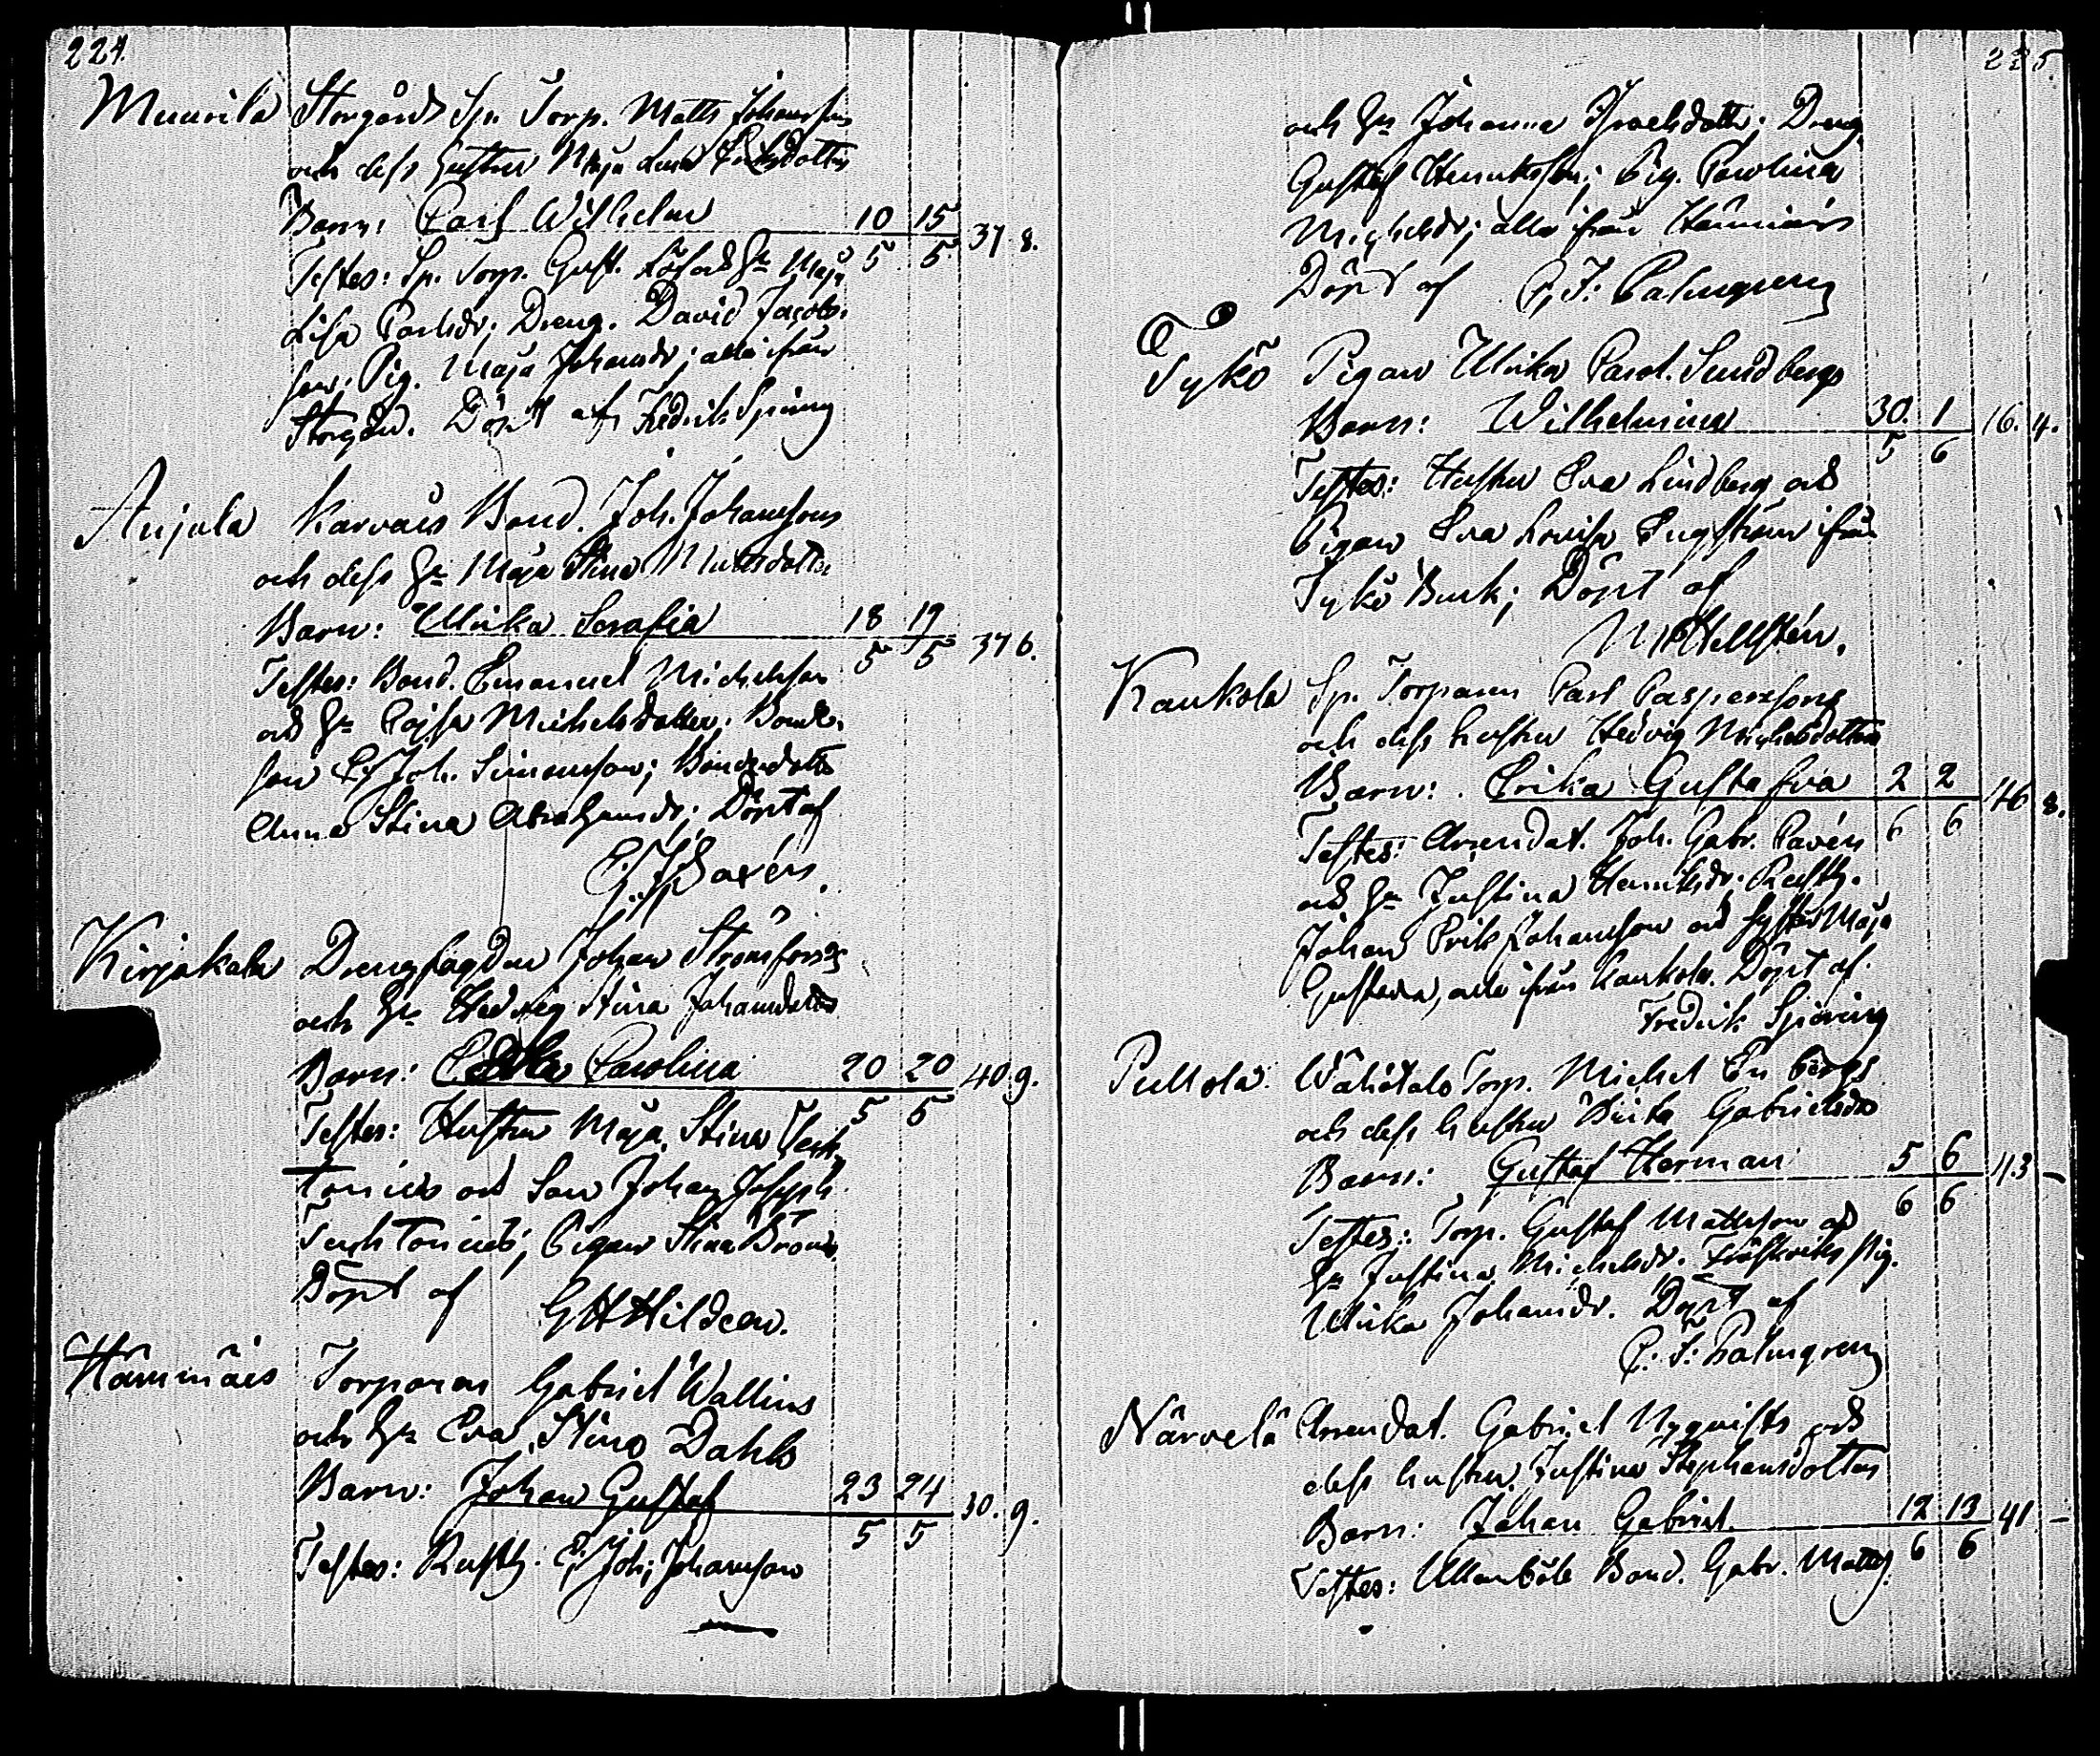 224.
Muurila Storgårds Sp. Torp. Matts Johanssons
och dess hustru Maja Lena
Barn: Carl Wilhelm 10 15 37. 8.
Testes: Sp. Torp. Gust. Löf och Hu Maja 5 5
Lisa Carlsdr; Dreng. David Jacobs-
son; Pig. Maja Johansdr; alla ifrån
Storgård. Döpt af Fredrik Sporing
Anjala Karvais Bond. Joh. Johanssons
och dess Hu Maja Stina Mattsdotters
Barn: Ulrika Serafia 18 19 37 6.
Testes: Bond. Emanuel Michelsson 5 5
och Hu Cajsa Michelsdotter. Bonde-
son C. Joh. Simonsson; Bondedotter
Anna Stina Abrahamsdr; Döpt af
Savén.
Kirjakala Drengfogden Johan Strömfors's
och Hu Hedvig Stina Johansdotters
Barn: Edla Carolina 20 20 40. 9.
Testes: Hustru Maja Stina Teck- 5 5
tonius och Son Johan Joseph
Tecktonius; Pigan Stina Broms
Döpt af GH Hildeen.
Hämmäis Torparen Gabriel Wallins
och Hu Eva Stina Dahls
Barn: Johan Gustaf 23 24 30. 9.
Testes: Rusth. C. Joh. Johansson 5 5
225.
och Hu Johanna Israelsdotter; Dreng
Gustaf Henriksson; Pig. Carolina
Michelsdr; alla från Hämmäis
Döpt af C. J. Palmgren
Tykö Pigan Ulrika Carol. Sundbergs
Barn: Wilhelmina 30. 1 16. 4.
5 6
Testes: Hustru Eva Lindberg och
Pigan Eva Lovisa Engström ifrån
Tykö Bruk; Döpt af
Hellstén.
Kaukola Sp. Torparen Carl Caspersssons
och dess hustru Hedvig Michelsdotters
Barn: Erika Gustafva 2 2 46 8.
Testes: Arrendat. Joh. Gabr. Pavén 6 6
och Hu Justina Henriksdr; Rusth.
Johan Erik Johansson och syster Maja
Gustava, alla ifrån Kaukola. Döpt af
Fredrik Sporing
Pullola Wähätalo Torp. Michel Enbergs
och dess hustru Brita Gabrielsdrs
Barn: Gustaf Herman 5 6 43 —
6 6
Testes: Torp. Gustaf Mattsson och
Hu Justina Michelsdr. pig.
Ulrika Johansdr. Döpt af
C. J. Palmgren
Närvelä Arrendat. Gabriel Nyqvists och
dess hustru Justina Stephansdotters
Barn: Johan Gabriel 12 13 41. —
Testes: Ullanböle Bond. Gabr. Matts. 6 6